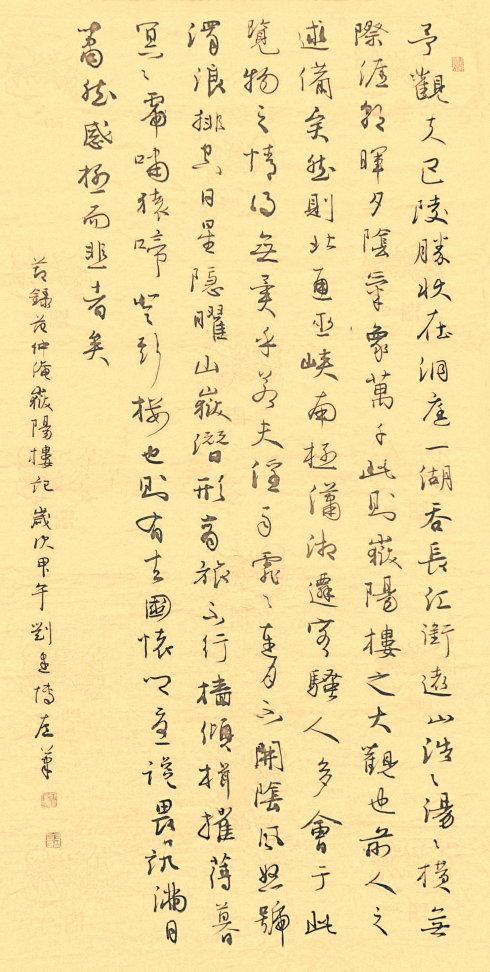 予觀夫巴陵勝狀在洞庭一湖吞長江銜遠山浩〻湯〻橫無
際涯朝暉夕陰氣象萬千此則嶽陽樓之大觀也前人之
述備矣然則北通巫峽南極瀟湘遷客騷人多會于此
覽物之情得無異乎若夫淫雨霏〻連月不開陰風怒號
濁浪排空日星隱曜山嶽潛形商旅不行檣傾楫摧薄暮
冥〻虎嘯猿啼登斯樓也則有去國懷鄉憂讒畏譏滿目
蕭然感極而悲者矣
節錄范仲淹嶽陽樓記歲次甲午劉